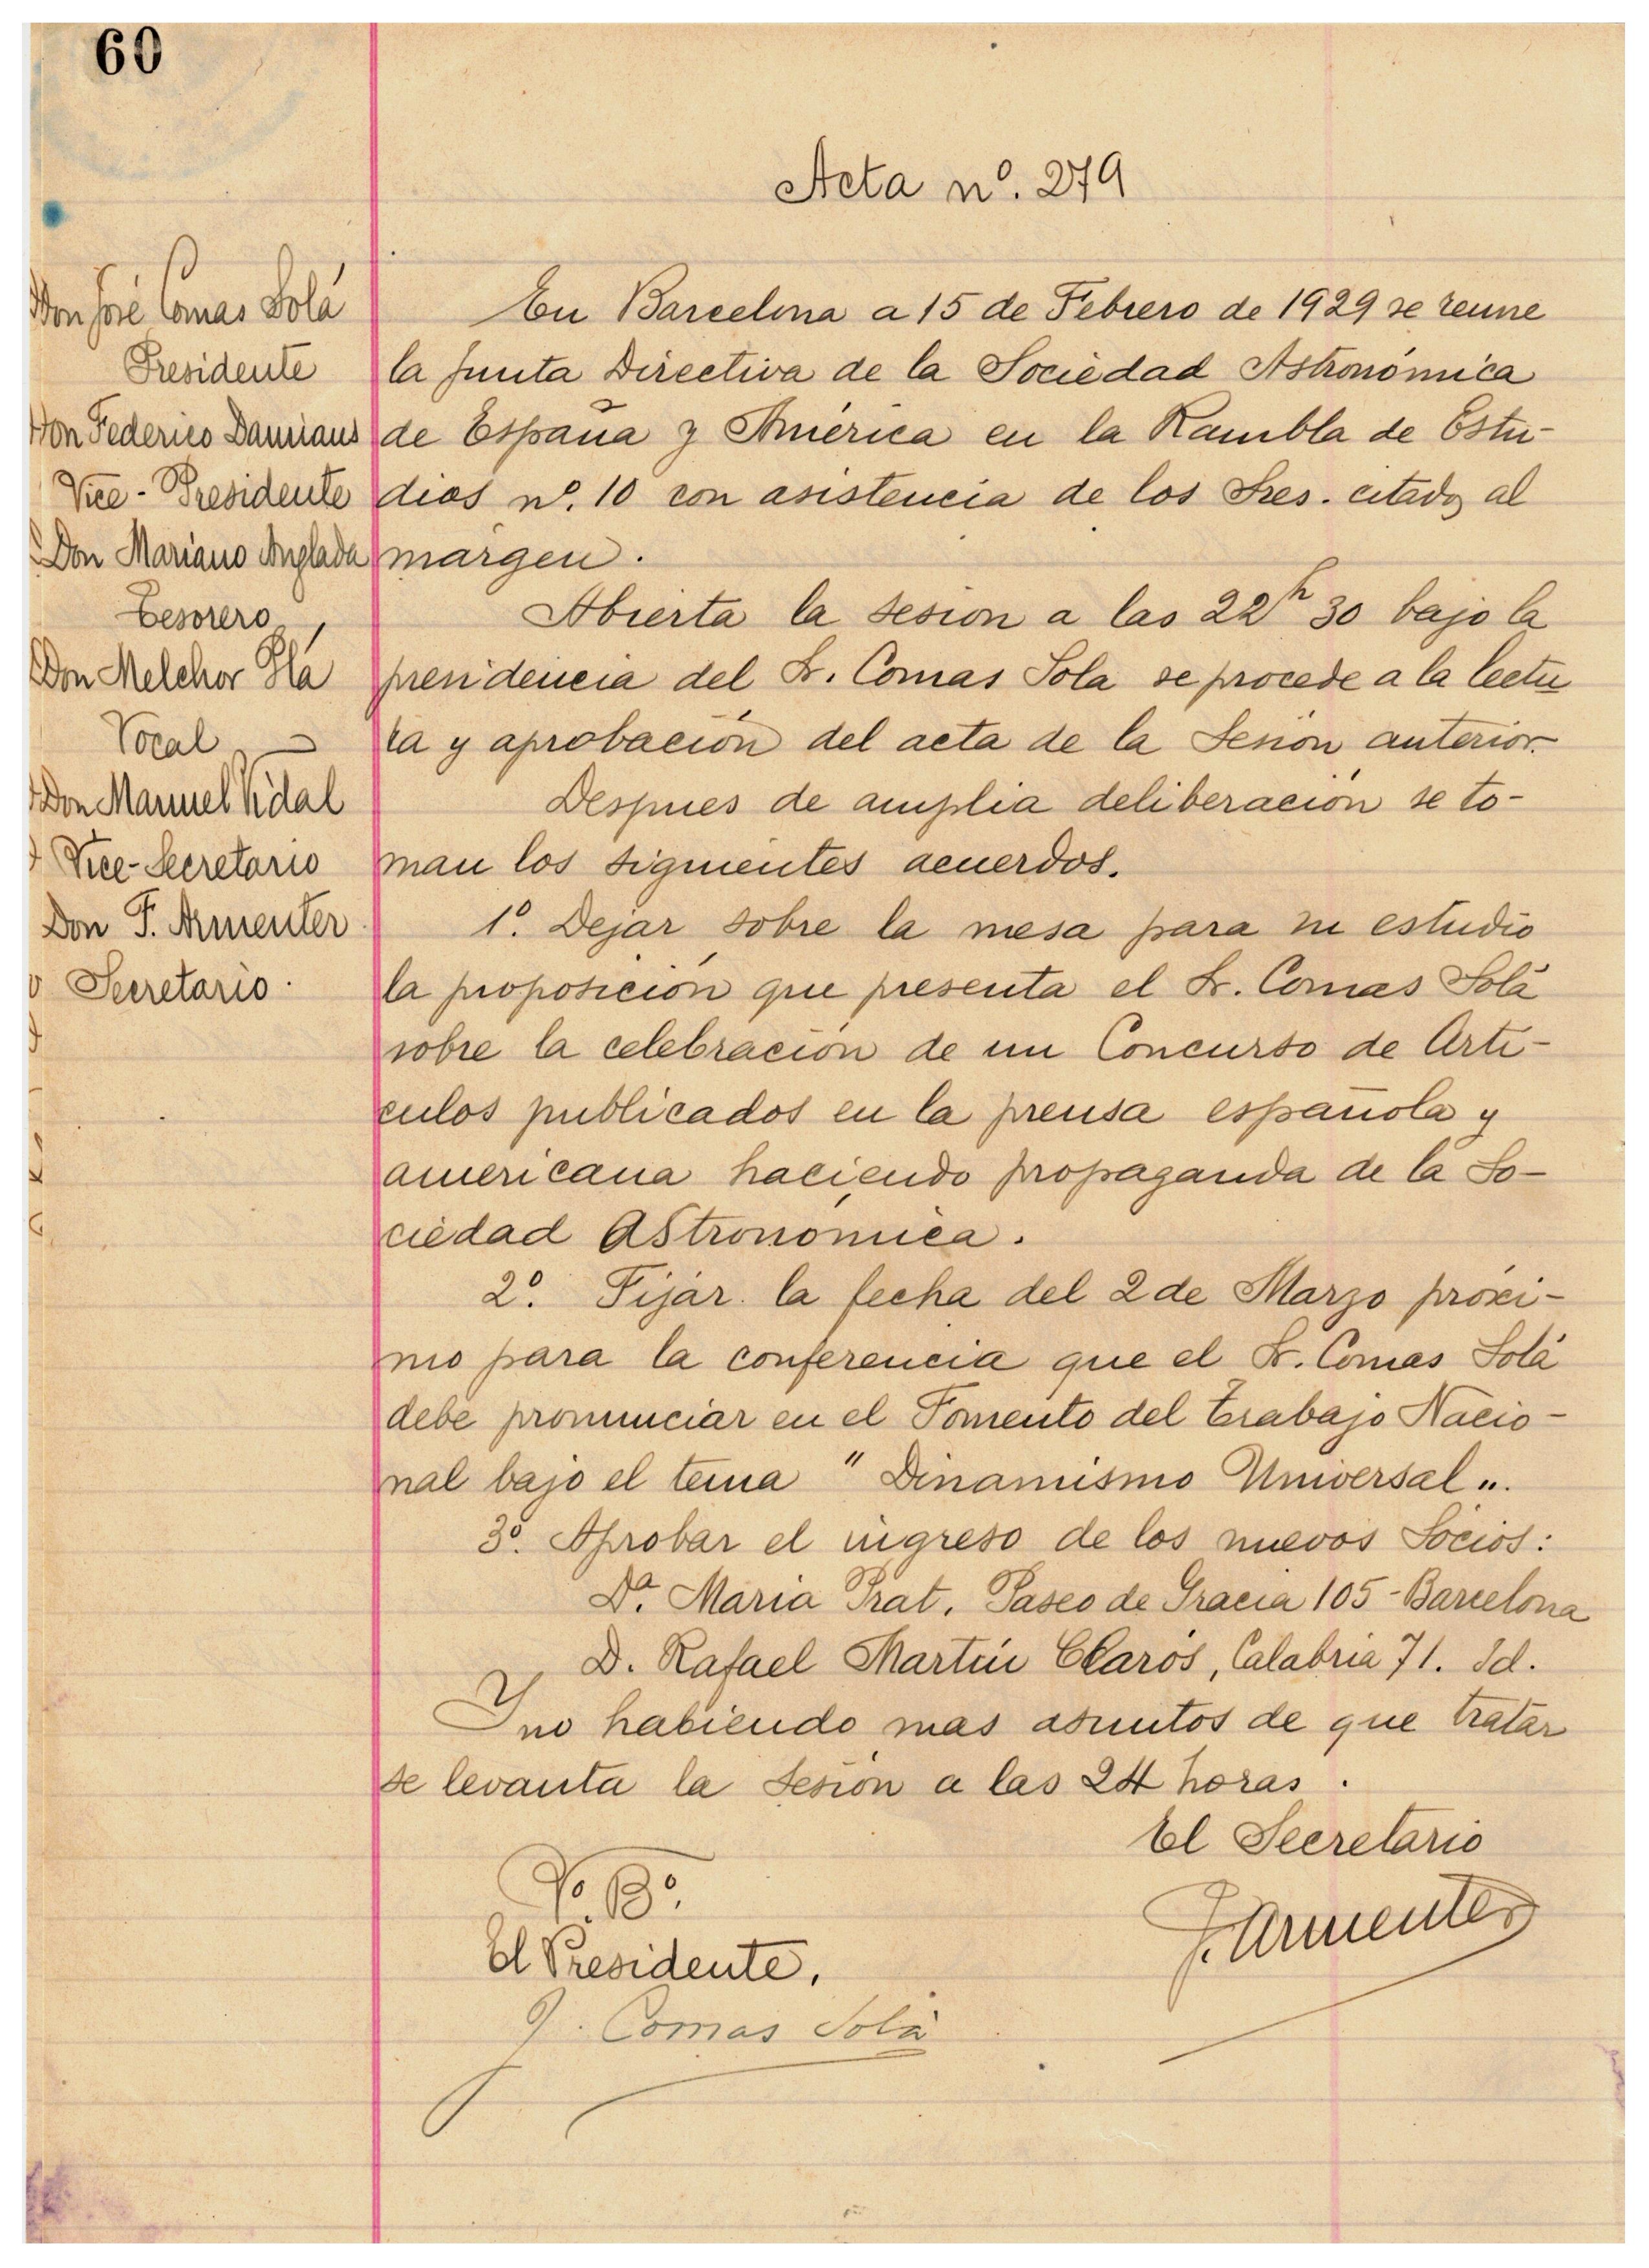 60
Acta nº. 279
Don José Comas Solá
Presidente
Don Federico Damians
Vice-Presidente
Don Mariano Anglada
Tesorero
Don Melchor Plá
Vocal
Don Manuel Vidal
Vice-Secretario
Don F. Armenter
Secretario.
En Barcelona a 15 de Febrero de 1929 se reune
la Junta Directiva de la Sociedad Astronómica
de España y América en la Rambla de Estu-
dios nº. 10 con asistencia de los Sres. citados al
margen.
Abierta la sesion a las 22h 30 bajo la
presidencia del Sr. Comas Sola se procede a la lectu
ra y aprobación del acta de la Sesión anterior.
Despues de amplia deliberación se to-
man los siguientes acuerdos.
1º. Dejar sobre la mesa para su estudio
la proposición que presenta el Sr. Comas Solá
sobre la celebración de un Concurso de Arti-
culos publicados en la prensa española y
americana haciendo propaganda de la So-
ciedad Astronomica.
2º. Fijar la fecha del 2 de Marzo proxi-
mo para la conferencia que el Sr. Comas Solá
debe pronunciar en el Fomento del Trabajo Nacio-
nal bajo el tema "Dinamismo Universal".
3º. Aprobar el ingreso de los nuevos Socios:
Dª. Maria Prat. Paseo de Gracia 105 - Barcelona
D. Rafael Martin Claros, Calabria 71. Id.
Y no habiendo mas asuntos de que tratar
se levanta la Sesión a las 24 horas.
El Secretario
F. Armenter
Vº. Bº.
El Presidente,
J. Comas Solà